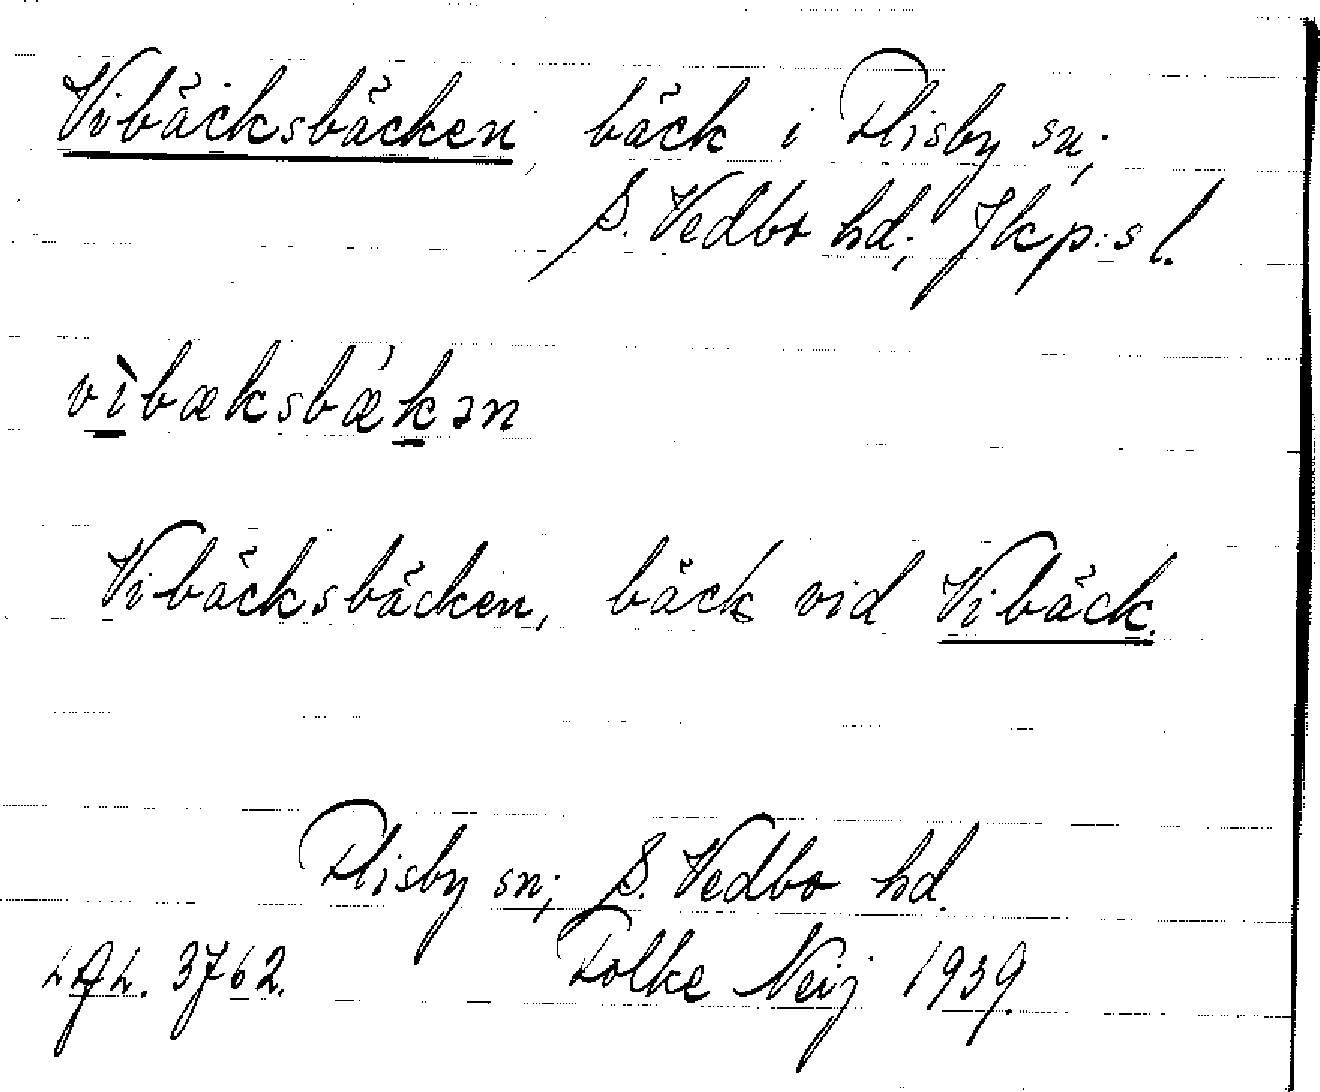 Vibäcksbäcken, bäck i Flisby sn;
S. Vedbo hd; Jkp:s l.
vìbæksbǽkən
Vibäcksbäcken, bäck vid Vibäck.
Flisby sn; S. Vedbo hd.
3762. Folke Neij 1939.